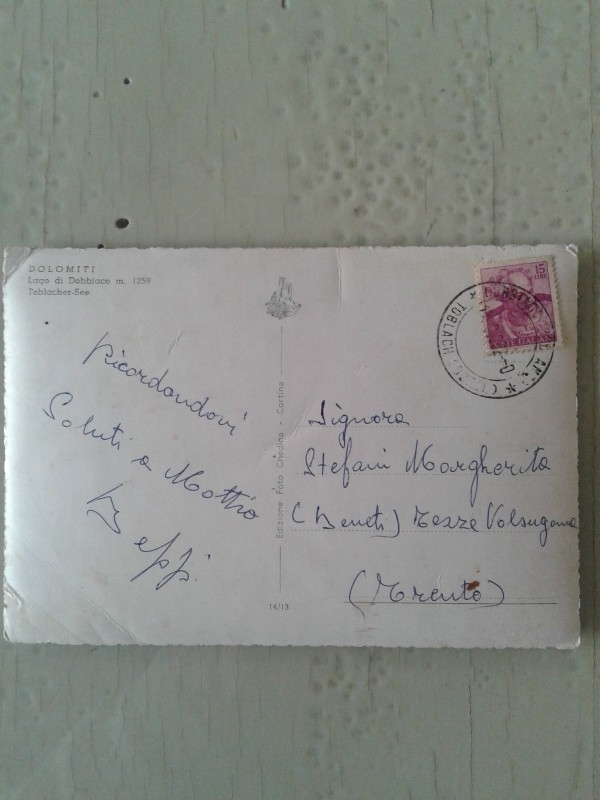 DOLOMITI
Lago di Dobbiaco m. 1259
Toblacher-See
Ricordandovi
Saluti a Mattio
Beppi.
Edizione Foto Ghedina - Cortina -
14/13
15
LIRE
POSTE ITALIANE
TOBLACH
Signora
Stefani Margherita
(Beneti) Tezze Valsugana
(Trento)